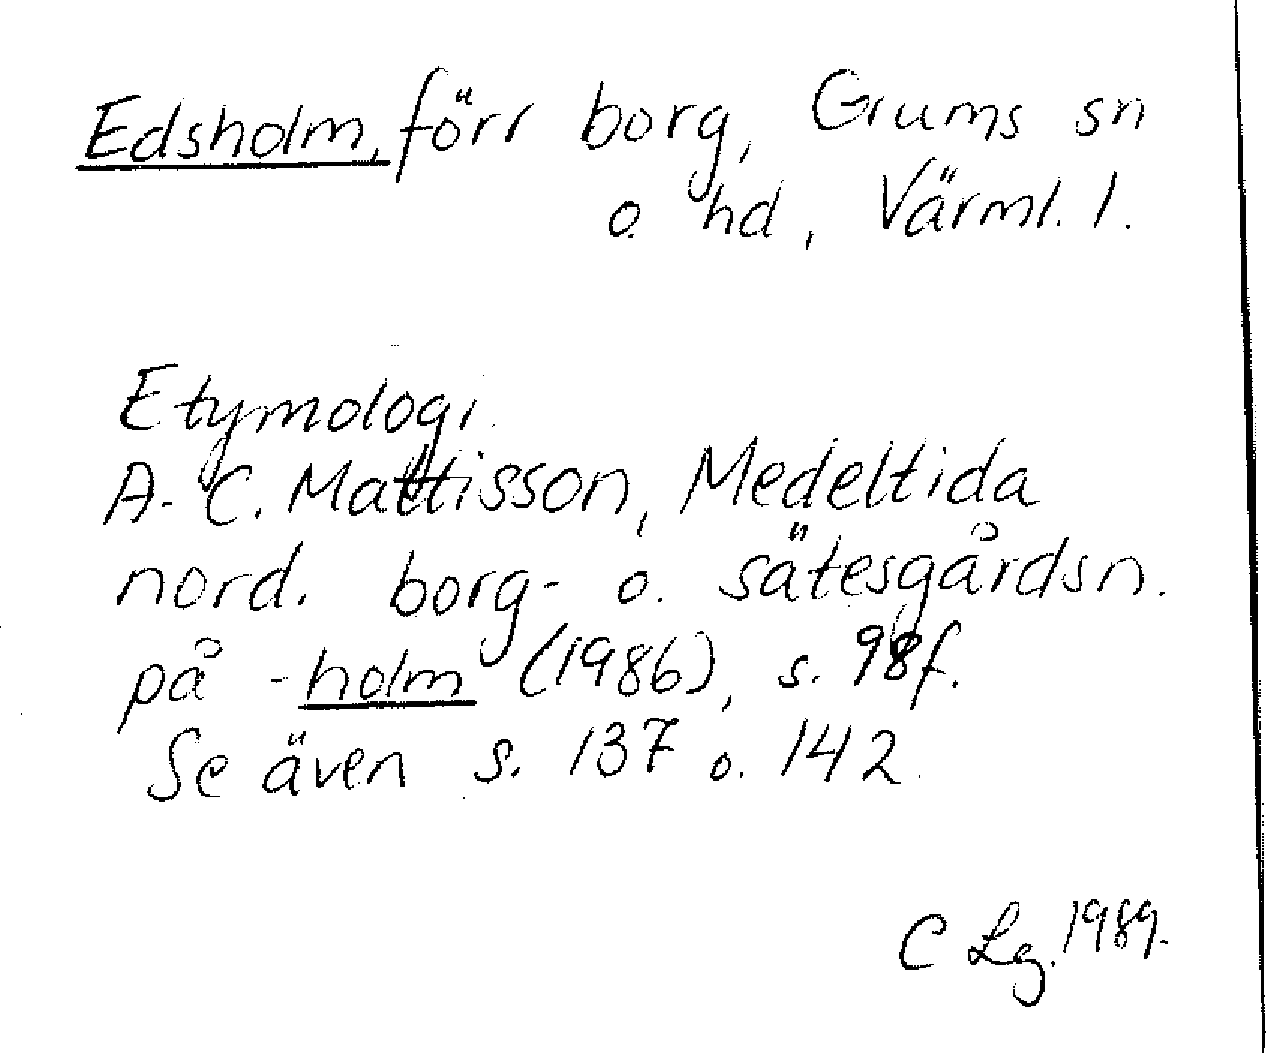 Edsholm, förr borg, Grums sn
o. hd, Värml. l.
Etymologi.
A.-C. Mattisson, Medeltida
nord. borg- o. sätesgårdsn.
på -holm (1986), s. 98f.
Se även s. 137 o. 142.
C Lg. 1989.